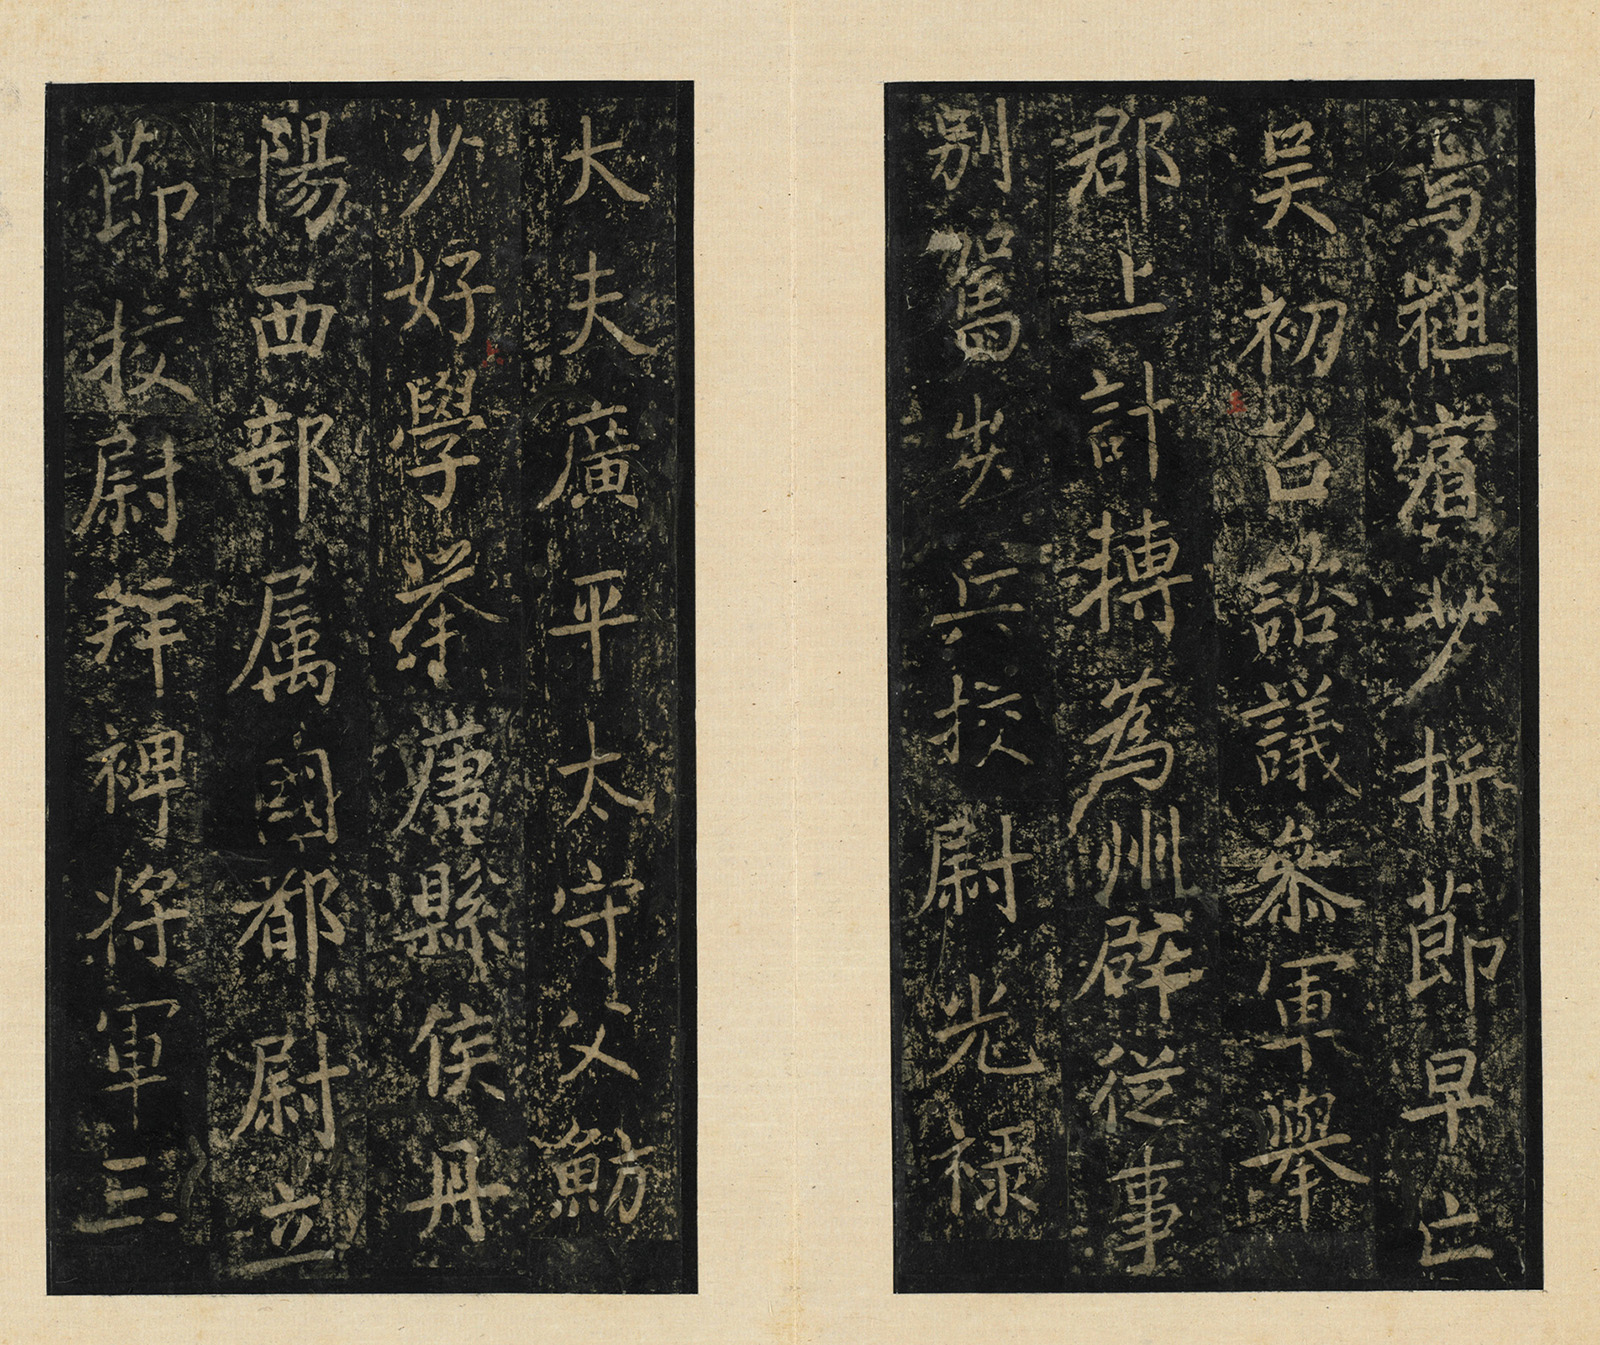 焉祖賓少折節早亡
吳初召諮議參軍舉
郡上計轉為州辟從事
別駕步兵校尉光祿
大夫廣平太守父魴
少好學舉廉縣侯丹
陽西部属國都尉立
節校尉拜裨將軍三